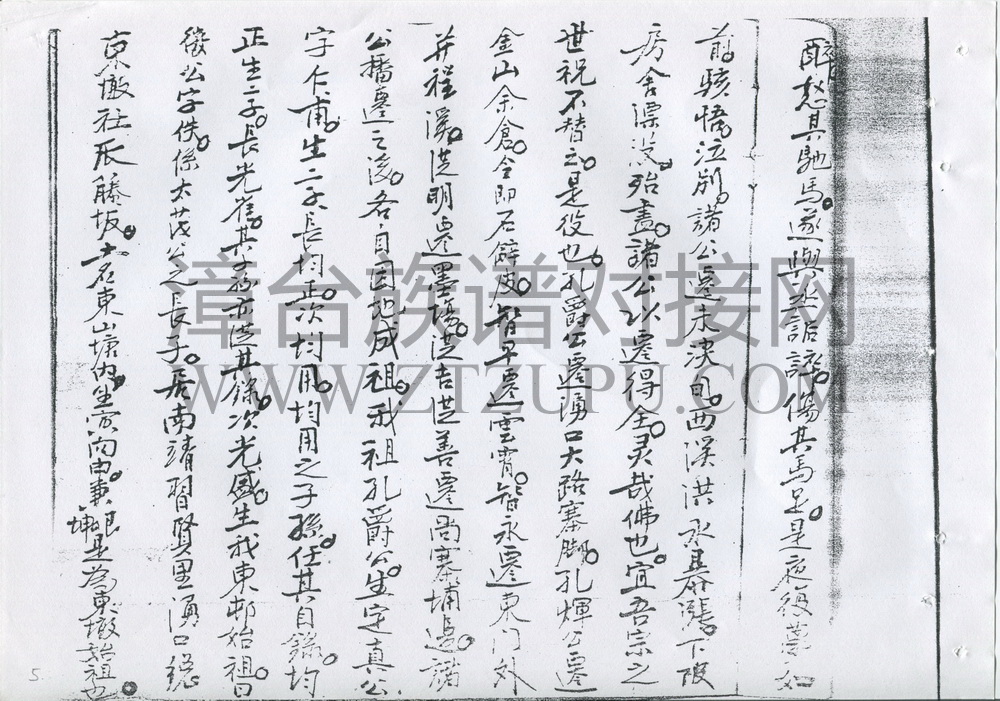 醉怒其馳馬。遂與之詬誶。傷其馬足。是夜復夢如
前駭悟。泣別諸公還未決司。西溪洪水暴漲。下陂
房舍漂没殆盡。諸公以遷得全。灵哉佛也。宜吾宗之
世祝不替云。是役也。孔爵公遷湧口大路寨脚。孔煇公遷
金山余倉。仝即石辟皮。智平遷雲霄。智永遷東门外
并程溪。洪明遷墨塲。洪吉洪善遷尚寨埔邊。諸
公播遷之後。各自因地成祖。我祖孔爵公。生定真公
字仁甫。生二子。長均正。次均用。均用之子孫。任其自錄。均
正生二子。長光崔。其裔亦從其錄。次光盛。生我東邨始祖。曰
徵公字佚。係太茂公之長子。居南靖習賢里湧口總
東墩社瓦藤坂。土名東山墩内。坐 向由 是為東墩始祖也。
5
漳台族谱对接网
WWW.ZTZUPU.COM